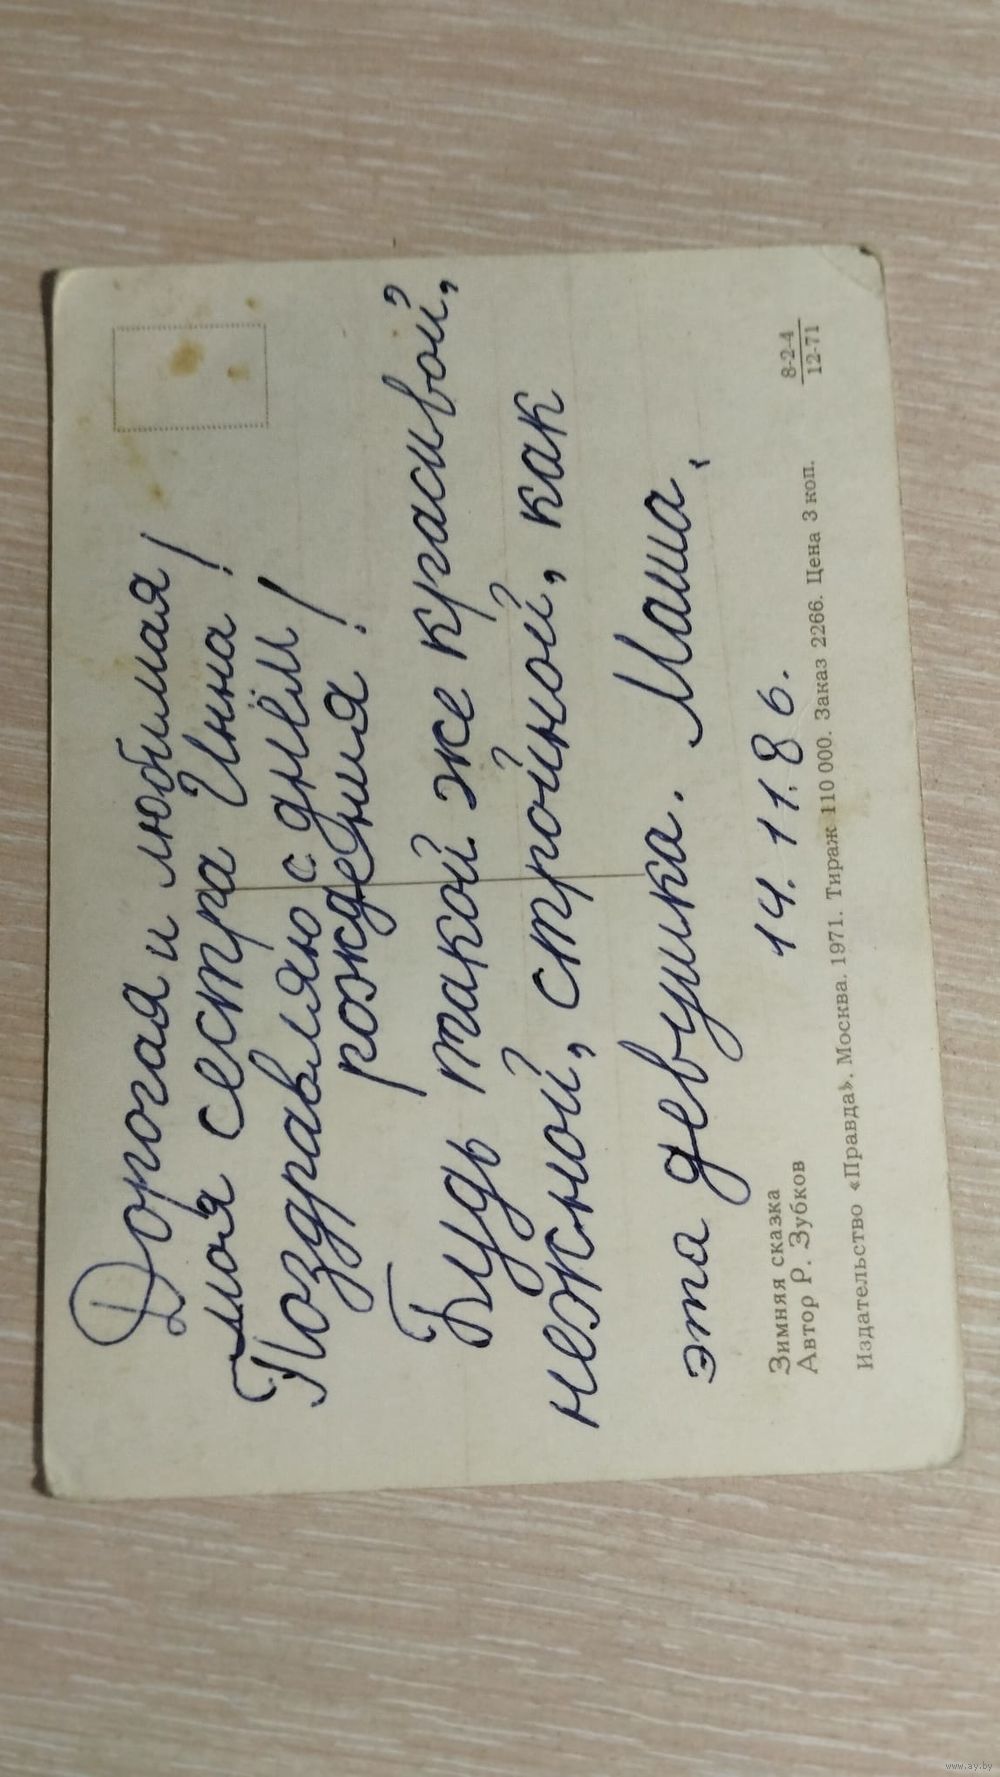 Дорогая и любимая
моя сестра Инна!
Поздравляю с днём
рождения!
Будь такой же красивой,
нежной, стройной, как
эта девушка. Маша.
14.11.86.
Зимняя сказка
Автор Р. Зубков
8-2-4
12-71
Издательство «Правда». Москва. 1971. Тираж 110 000. Заказ 2266. Цена 3 коп.
www.ay.by